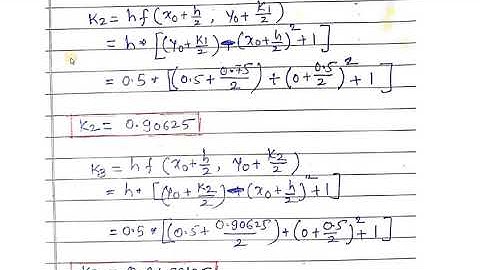 K2 = hf(x0+h/2, y0+K1/2)
= h*[(y0+K1/2)-(x0+h/2)²+1]
= 0.5*[(0.5+0.75/2)÷(0+0.5/2)²+1]
K2 = 0.90625
K3 = hf(x0+h/2, y0+K2/2)
= h*[(y0+K2/2)-(x0+h/2)²+1]
= 0.5*[(0.5+0.90625/2)+(0+0.5/2)²+1]